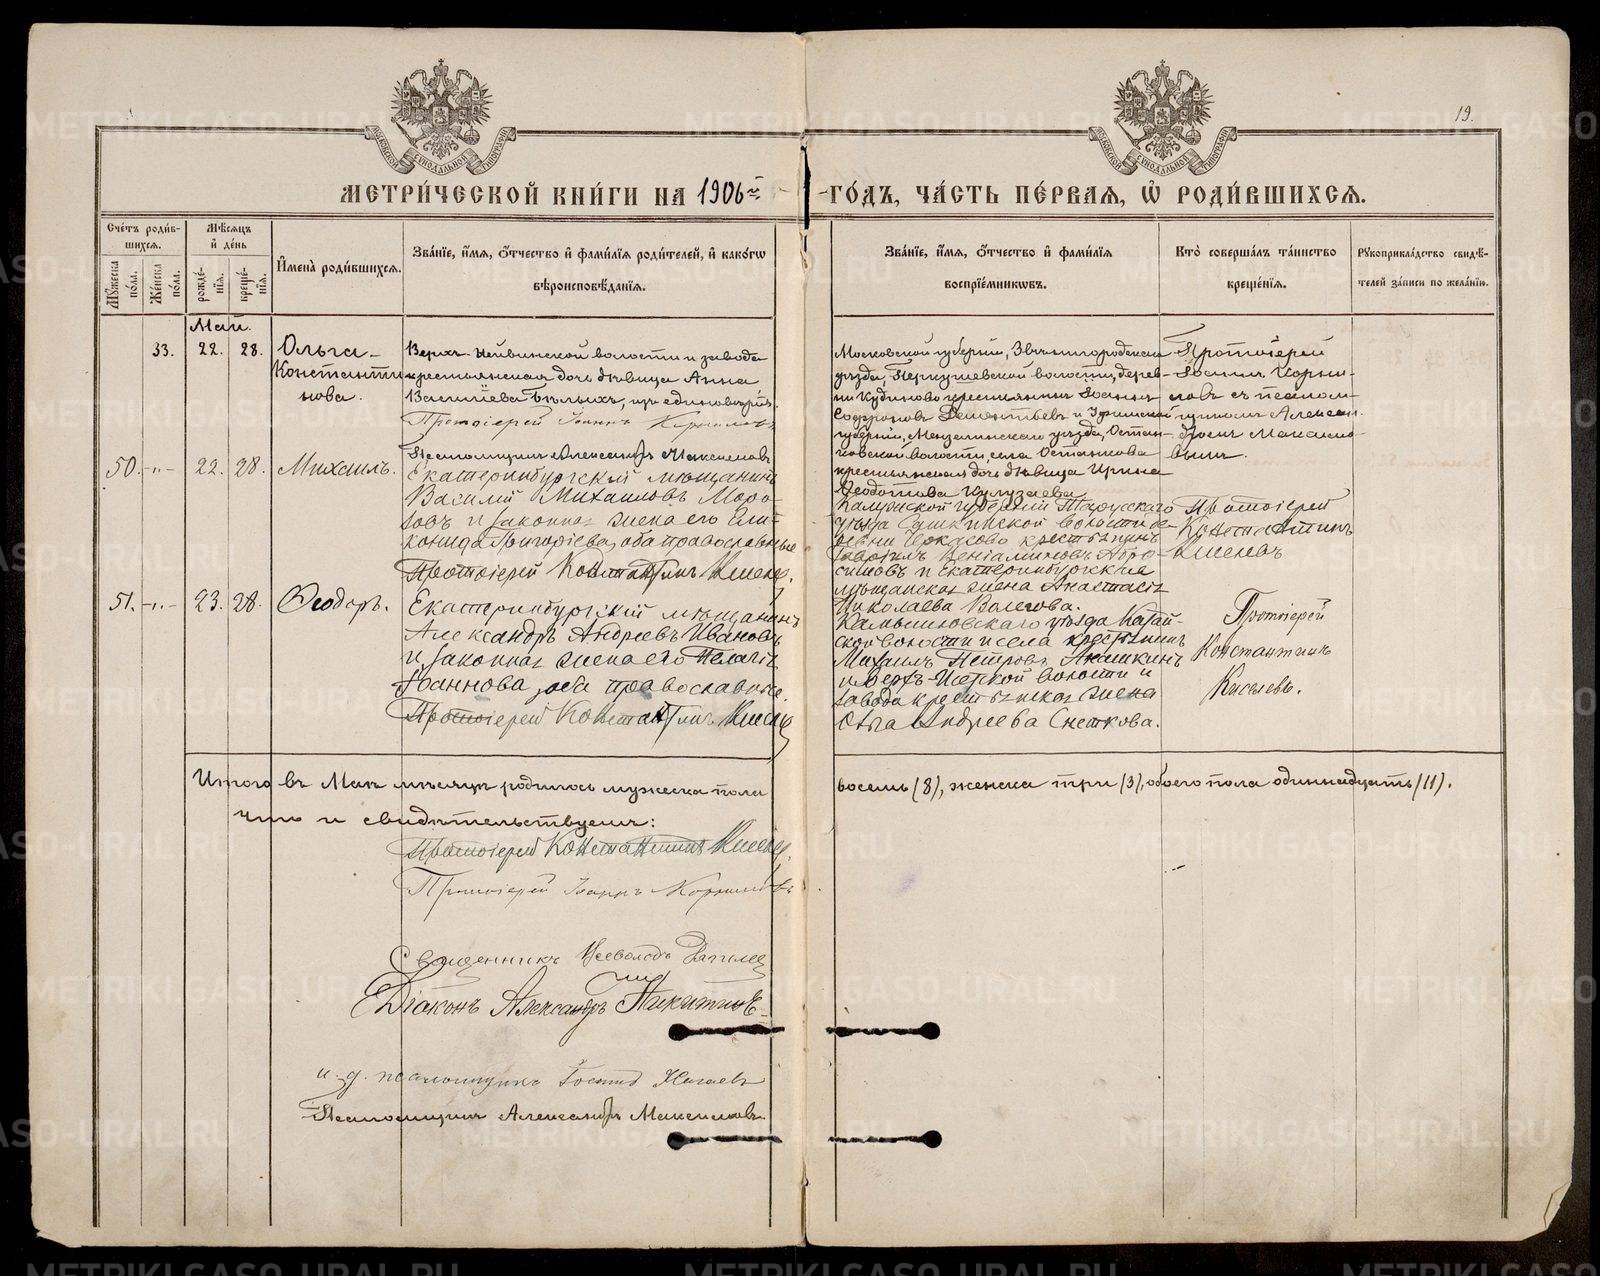 19.
МЕТРИ́ЧЕСКОЙ КНИ́ГИ НА 1906й
ГО́ДЪ, ЧА́СТЬ ПЕ́РВАЯ, Ѡ РОДИ́ВШИХСЯ.
Сче́тъ роди́в-
шихся.
Мꙋ́жеска по́ла.
Же́нска по́ла.
Мѣ́сяцъ и де́нь
рожде́-
нїя.
креще́-
нїя.
И҆мена̀ роди́вшихся.
Зва́нїе, и҆́мя, ѻ҆́тчество и҆ фами́лїя роди́телей, и҆ како́гѡ
вѣроисповѣ́данїя.
Зва́нїе, и҆́мя, ѻ҆́тчество и҆ фами́лїя
воспрїе́мникѡвъ.
Кто̀ соверша́лъ та́инство
креще́нїя.
Рꙋкоприкла́дство свидѣ́-
телей за́писи по жела́нїю.
Май.
33. 22. 28.
Ольга
Константи-
нова.
Верхъ-Нейвинской волости и завода
крестьянская дочь дѣвица Анна
Васильева Бѣлыхъ, изъ единовѣрія.
Протоіерей Іоаннъ Корниловъ
Псаломщикъ Александръ Максимовъ
Московской губерніи, Звѣнигородскаго
уѣзда, Перхушевской волости, дерев-
ни Кубиново крестьянинъ Іоаннъ
Софроновъ Дементьевъ и Уфимской
губерніи, Мензелинскаго уѣзда, Остан-
ковской волости, села Останкова
крестьянская дочь дѣвица Ирина
Ѳеодотова
Протоіерей
Іоаннъ Корни-
ловъ съ псалом-
щикомъ Алексан-
дромъ Максимо-
вымъ.
50. -"- 22. 28. Михаилъ.
Екатеринбургскій мѣщанинъ
Василій Михаиловъ Моро-
зовъ и законная жена его Гли-
конида Григоріева, оба православные
Протоіерей Константинъ Киселевъ.
Калужской губерніи Тарусскаго
уѣзда волости де-
ревни Черкасово крестьянинъ
Гавріилъ Веніаминовъ Абро-
симовъ и Екатеринбургская
мѣщанская жена Анастасія
Николаева Волегова.
Протоіерей
Константинъ
Киселевъ
51. -"- 23. 28. Ѳеодоръ.
Екатеринбургскій мѣщанинъ
Александръ Андреевъ Ивановъ
и законная жена его Пелагія
Іоаннова, оба православные.
Протоіерей Константинъ Киселевъ
Камышловскаго уѣзда Катай-
ской волости и села крестьянинъ
Михаилъ Петровъ Анашкинъ
и Верхъ-Исетской волости и
завода крестьянская жена
Ольга Андреева Снеткова.
Протоіерей
Константинъ
Киселевъ.
Итого въ Маѣ мѣсяцѣ родилось мужеска пола
восемь (8), женска три (3), обоего пола одиннадцать (11).
что и свидѣтельствуемъ:
Протоіерей Константинъ Киселевъ.
Протоіерей Іоаннъ Корниловъ
Священникъ Всеволодъ
Діаконъ Александръ Никитинъ
и. д. псаломщика
Псаломщикъ Александръ Максимовъ.
METRIKI.GASO-URAL.RU